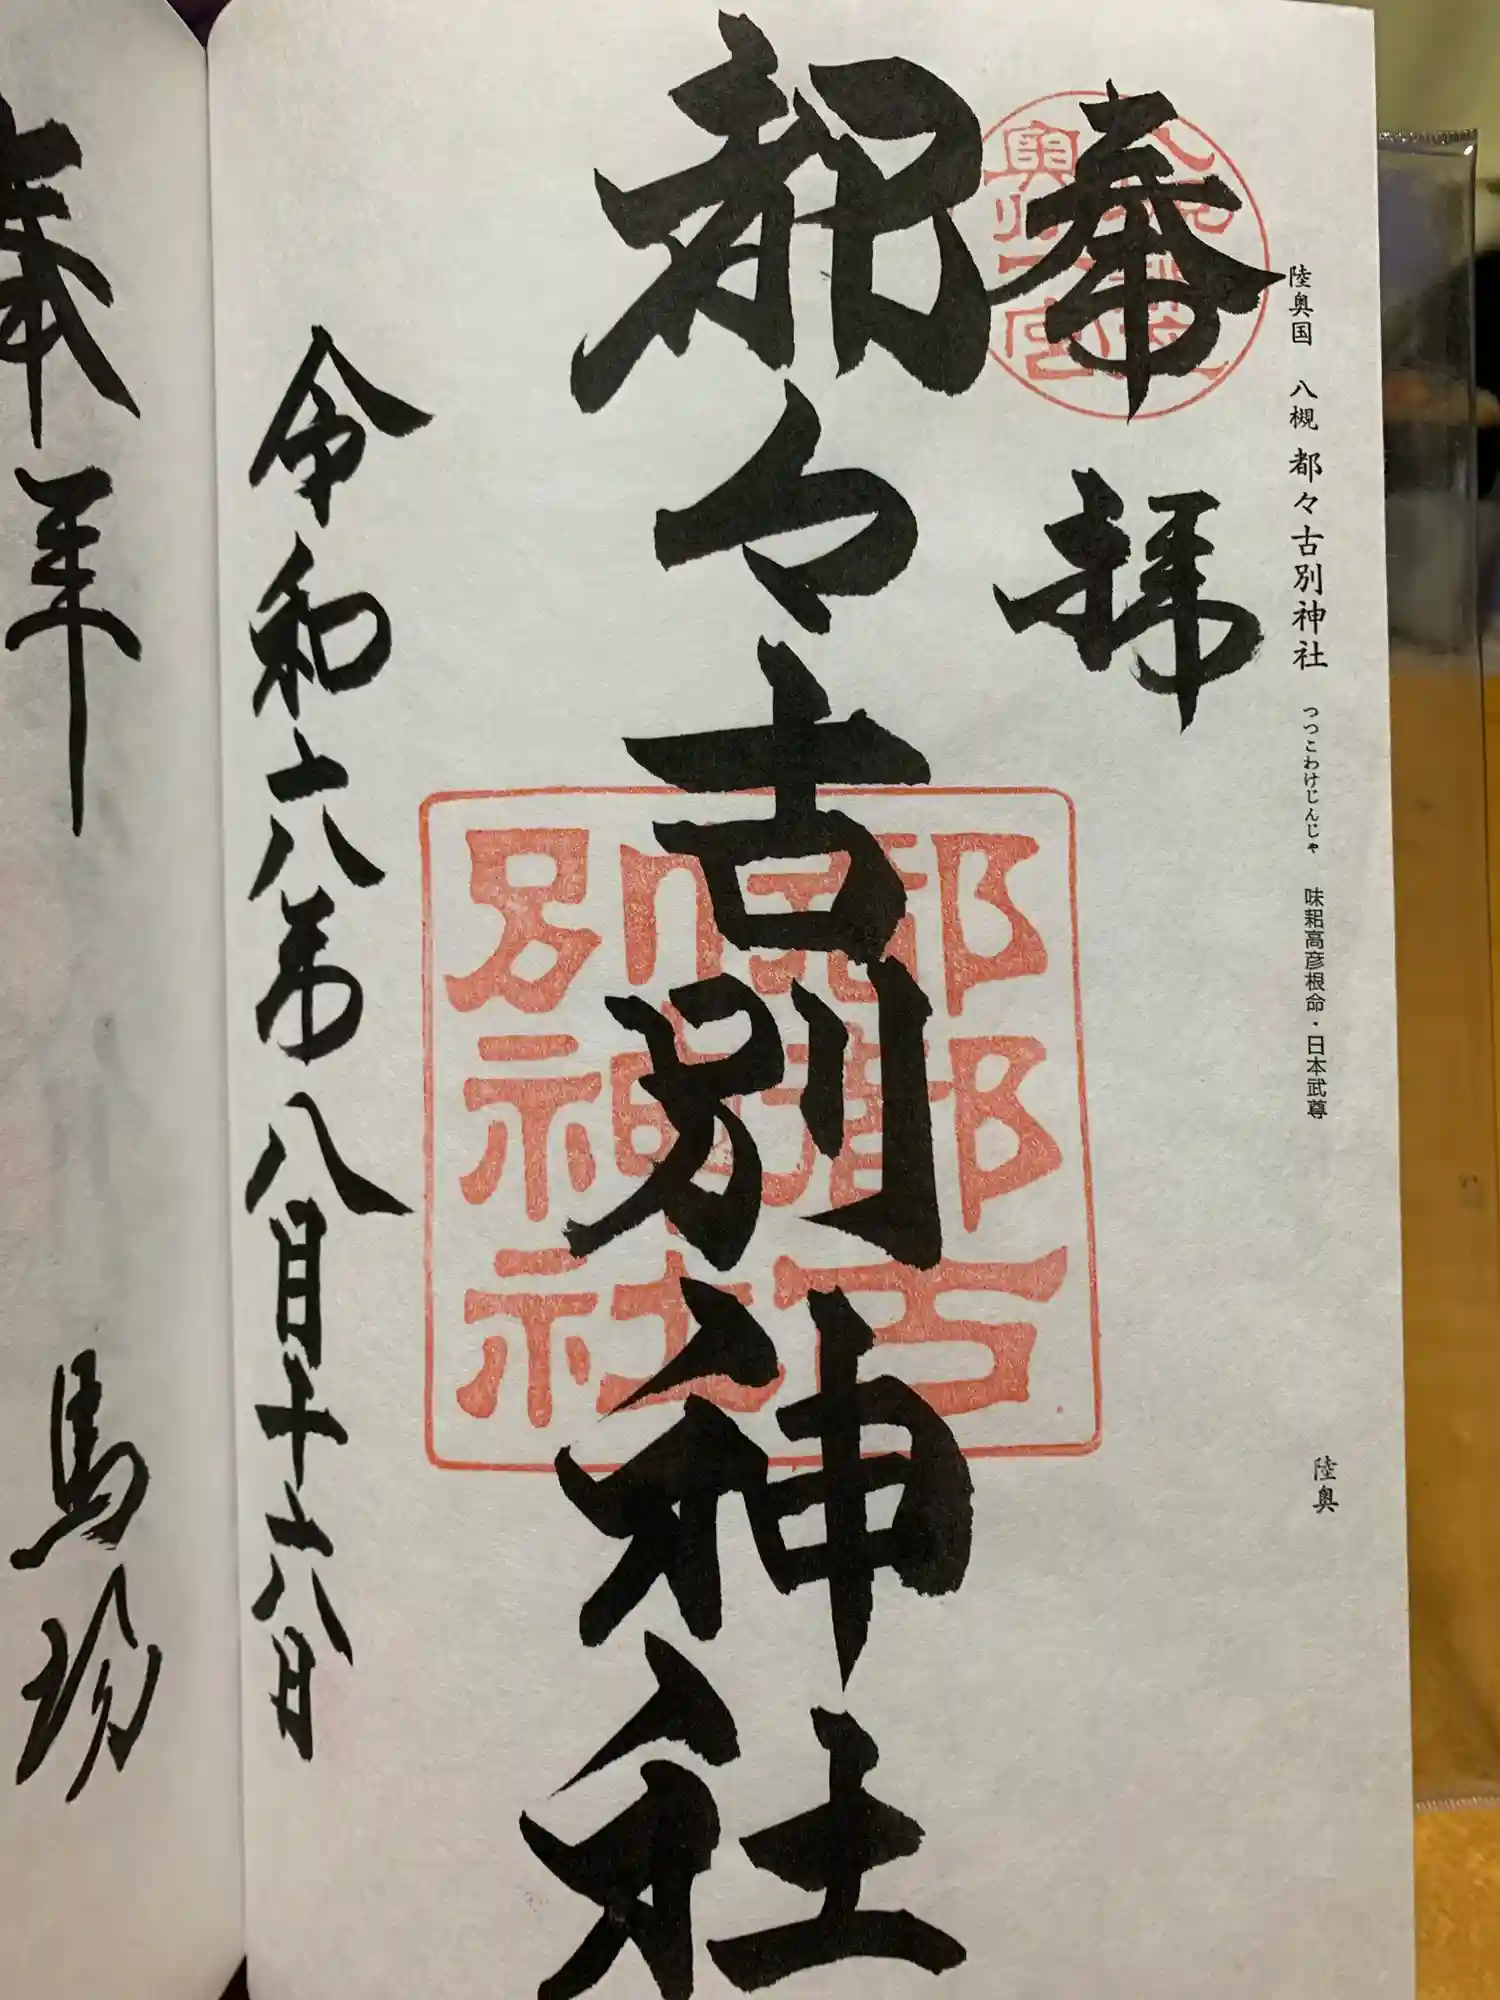 陸奥国 八槻 都々古別神社 つつこわけじんじゃ 味耜高彦根命・日本武尊 陸奥
奉拝
奥州一宮
都々古別神社
都都古
別神社
令和六年八月十六日
奉拝
馬場